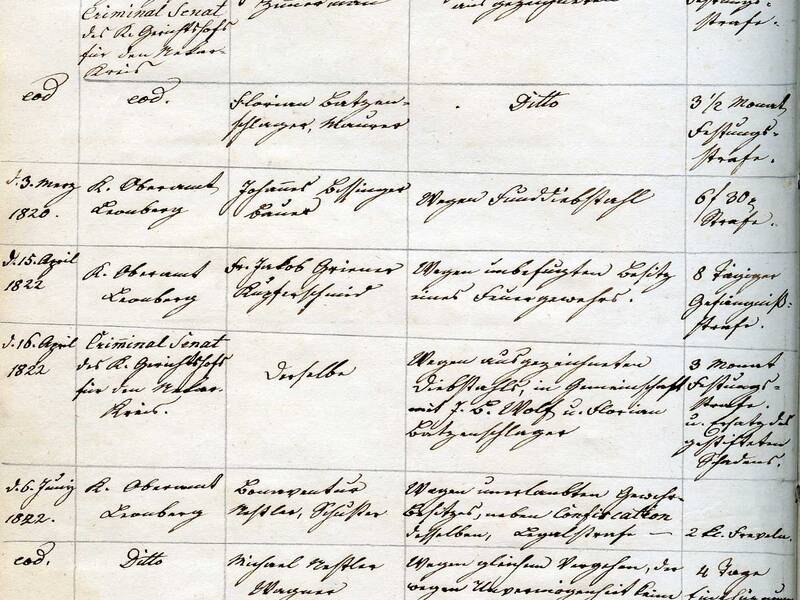 Criminal Senat
des K. Gerichtshofs
für den Nekar-
Kreis
Festungs-
strafe.
eod
eod.
Florian Batzen-
schlager, Maurer
Ditto
3 1/2 Monat
Festungs-
strafe.
d. 3. Merz
1820.
K. Oberamt
Leonberg
Johannes Bissinger
Bauer
Wegen Funddiebstahl
6 f 30 x
Strafe.
d. 15. April
1822
K. Oberamt
Leonberg
Fr. Jakob Griener
Kupferschmid
Wegen unbefugten Besitz
eines Feuergewehrs.
8 Tägiger
Gefängniß-
strafe.
d. 16. April
1822
Criminal Senat
des K. Gerichtshofs
für den Nekar-
Kreis.
Derselbe
Wegen ausgezeichneten
Diebstahls, in Gemeinschaft
mit J. B. Wolf u. Florian
Batzenschlager
3 Monat
Festungs-
strafe.
u. Ersatz des
gestifteten
Schadens.
d. 6. Juny
1822.
K. Oberamt
Leonberg
Bonaventur
Nestler, Schuster
Wegen unerlaubten Gewehr-
Besitzes, neben Confiscation
desselben, Legalstrafe —
2 kl. Freveln.
eod.
Ditto
Michael Nestler
Wagner
Wegen gleichem Vergehen, der
wegen Unvermögenheit keine
4 Tage